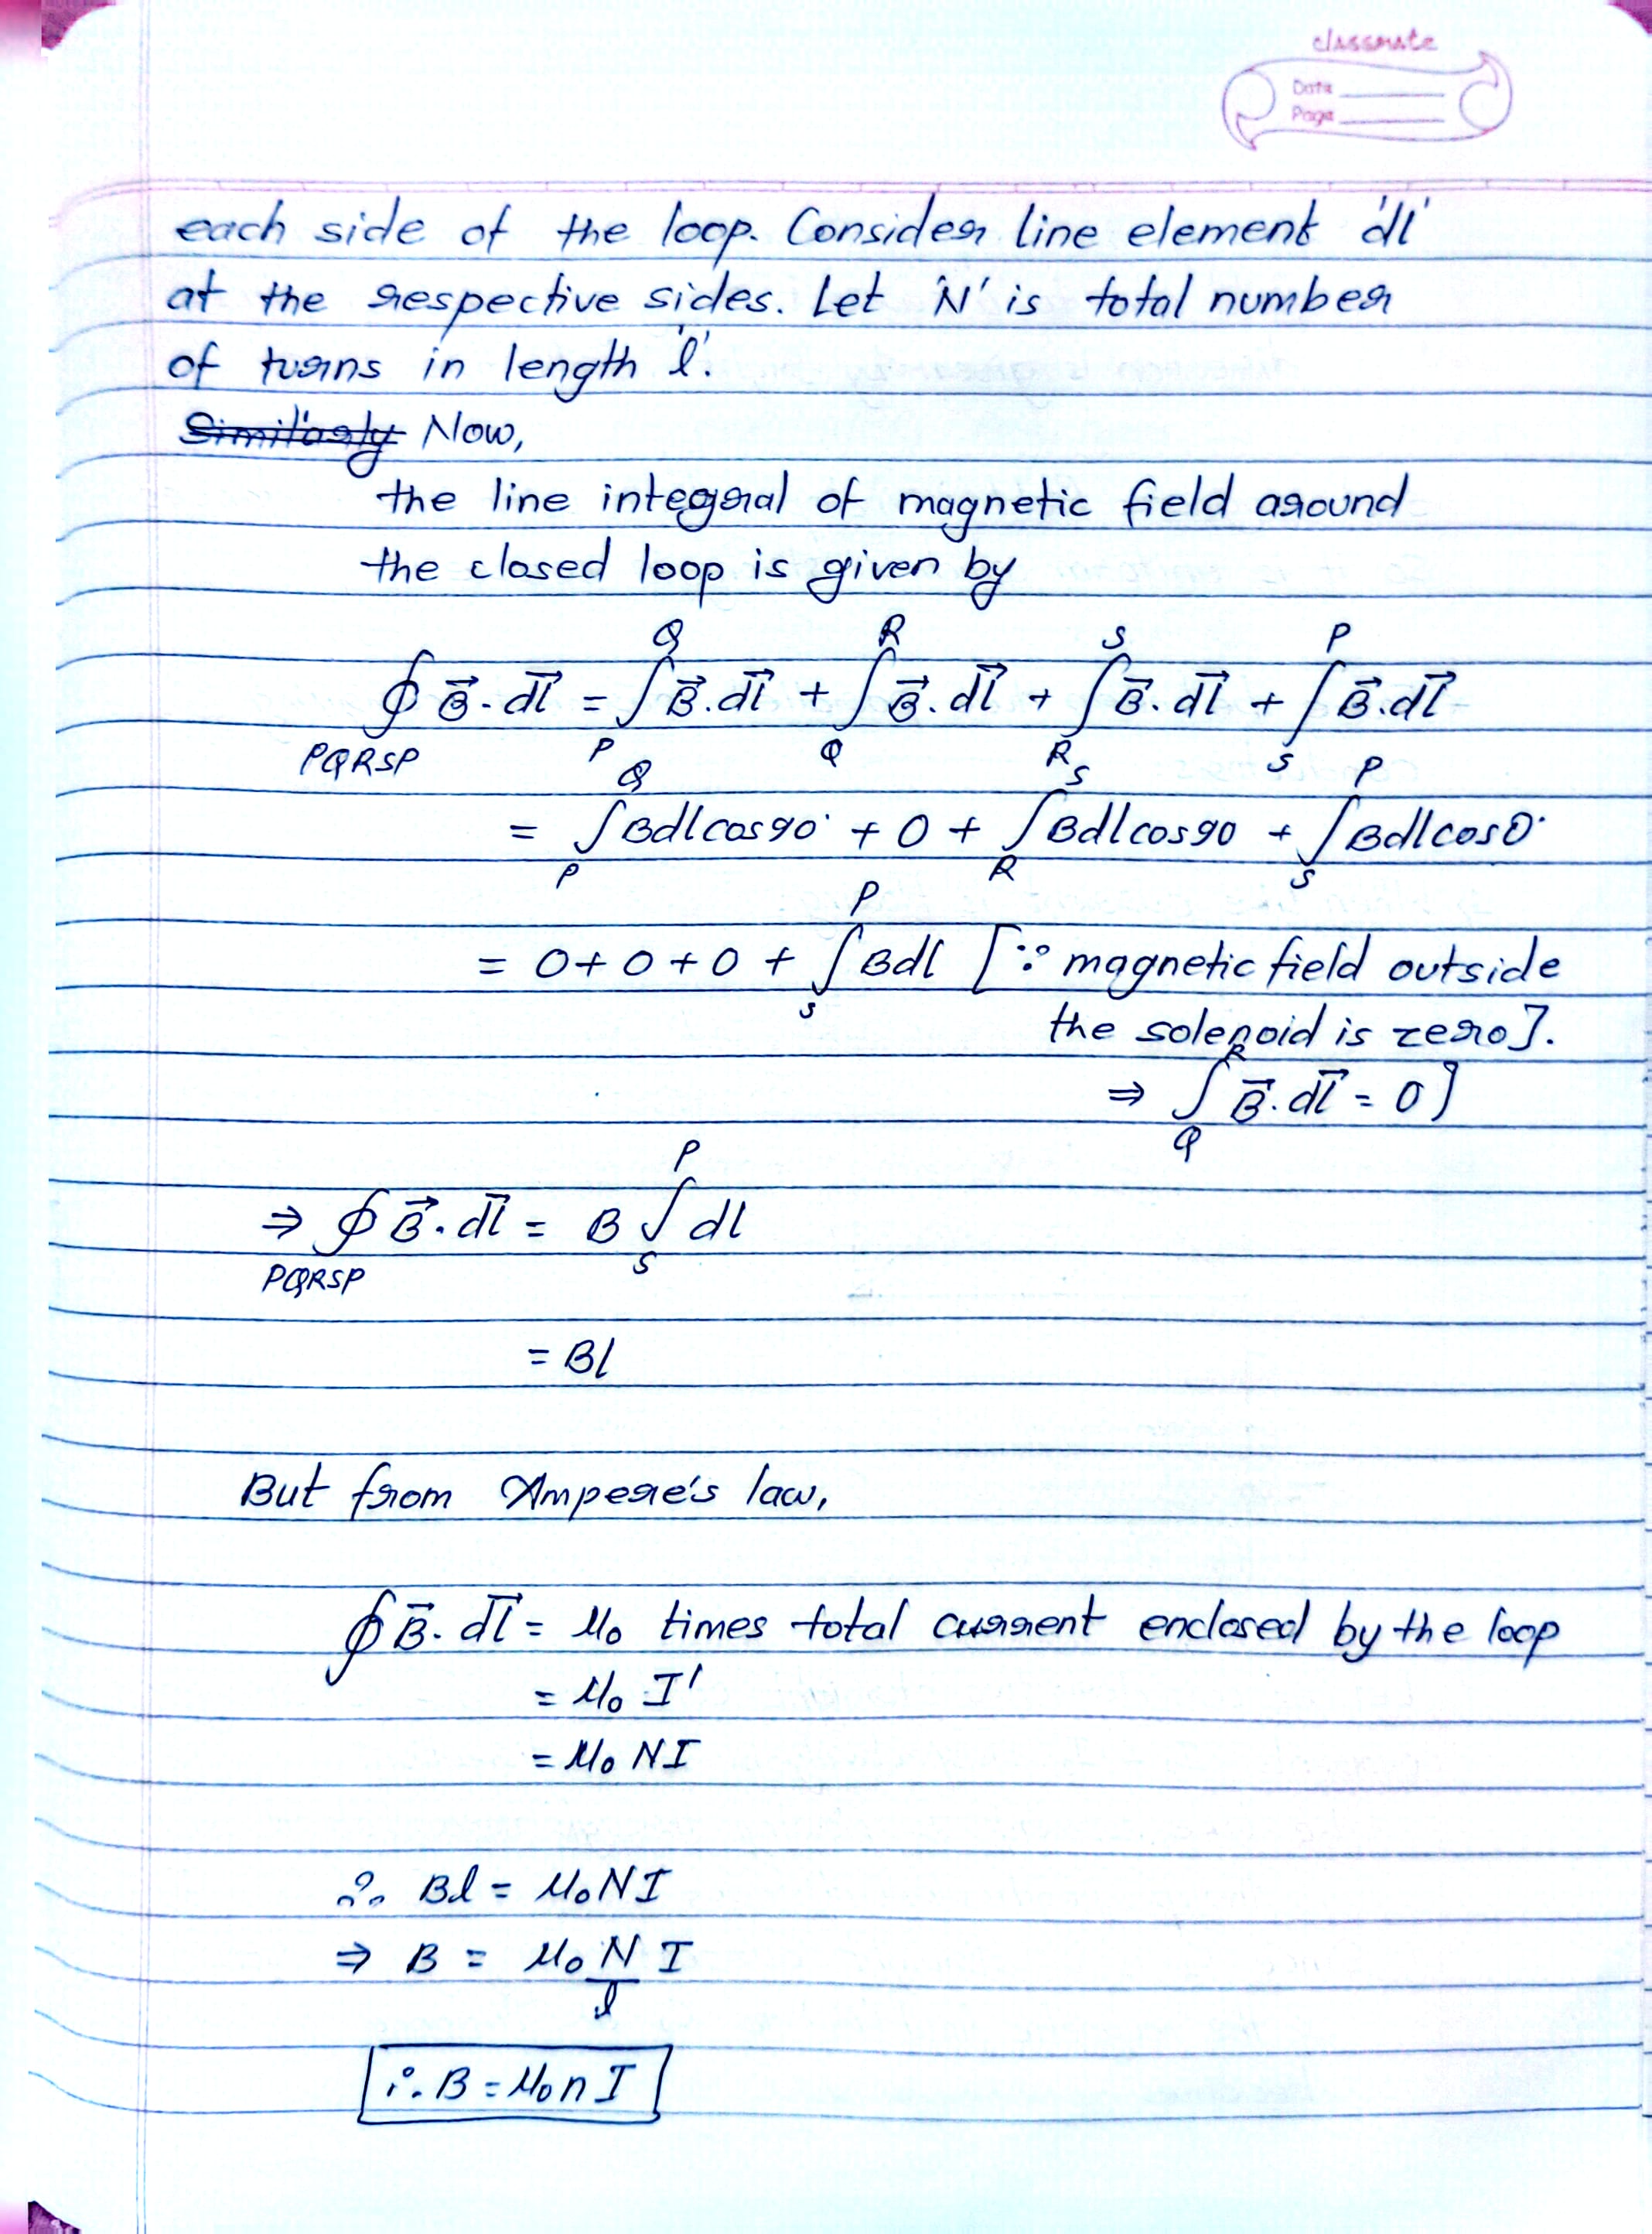 classmate
Date
Page
each side of the loop. Consider line element 'dl'
at the respective sides. Let 'N' is total number
of turns in length 'l'.
Similarly Now,
the line integral of magnetic field around
the closed loop is given by
∮_PQRSP B⃗.dl⃗ = ∫_P^Q B⃗.dl⃗ + ∫_Q^R B⃗.dl⃗ + ∫_R^S B⃗.dl⃗ + ∫_S^P B⃗.dl⃗
= ∫_P^Q Bdlcos90° + 0 + ∫_R^S Bdlcos90 + ∫_S^P Bdlcos0°
= 0 + 0 + 0 + ∫_S^P Bdl [∵ magnetic field outside
the solenoid is zero].
⇒ ∫_Q^R B⃗.dl⃗ = 0]
⇒ ∮_PQRSP B⃗.dl⃗ = B ∫_S^P dl
= Bl
But from Ampere's law,
∮ B⃗.dl⃗ = μ₀ times total current enclosed by the loop
= μ₀ I'
= μ₀ NI
∴ Bl = μ₀NI
⇒ B = μ₀ N/l I
∴ B = μ₀nI